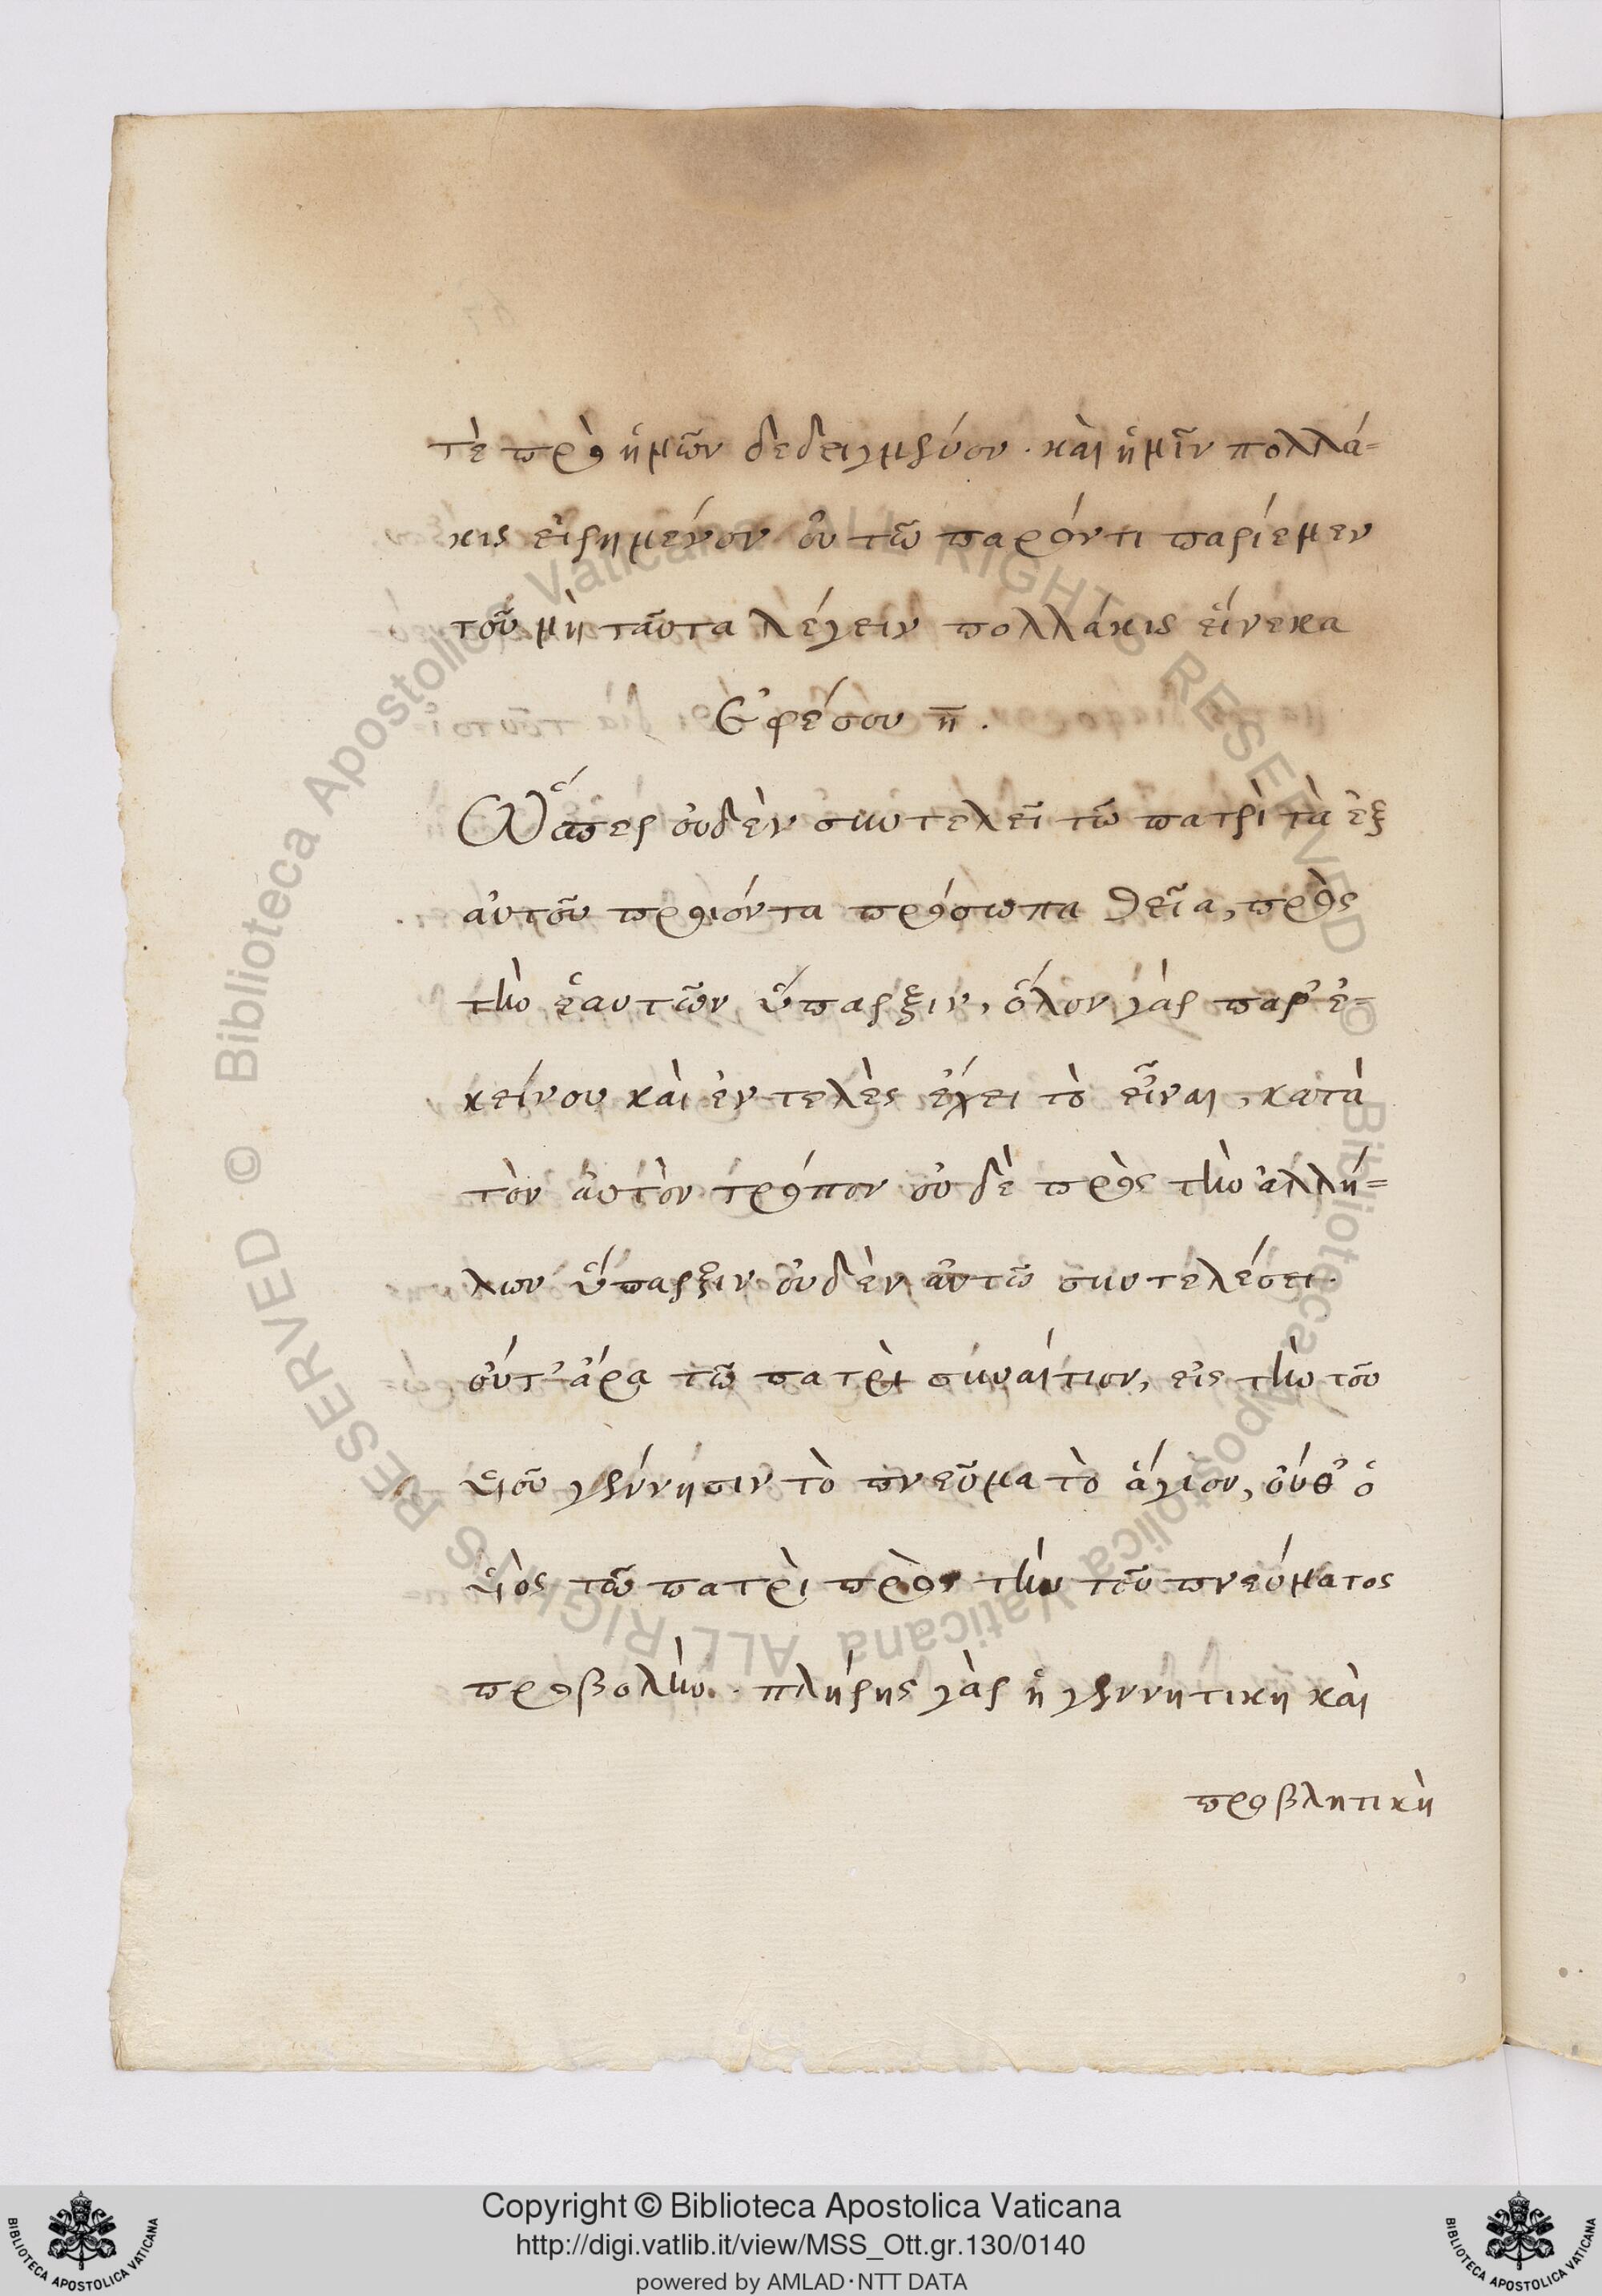 τὲ πρὸ ἡμῶν δεδειγμένον. καὶ ἡμῖν πολλά=
κις εἰρημένον ἐν τῶ παρόντι παρίεμεν
τοῦ μὴ ταῦτα λέγειν πολλάκις εἵνεκα
Ἐφέσου η.
Ὥσπερ οὐδὲν συντελεῖ τῶ πατρὶ τὰ ἐξ
αὐτοῦ προιόντα πρόσωπα θεῖα, πρὸς
τὴν ἑαυτῶν ὕπαρξιν, ὅλον γὰρ παρ' ἐ=
κείνου καὶ ἐντελὲς ἔχει τὸ εἶναι, κατὰ
τὸν αὐτὸν τρόπον οὐδὲ πρὸς τὴν ἀλλή=
λων ὕπαρξιν οὐδὲν αὐτῶ συντελέσει.
οὔτ' ἄρα τῶ πατρὶ συναίτιον, εἰς τὴν τοῦ
υἱοῦ γέννησιν τὸ πνεῦμα τὸ ἅγιον, οὔθ' ὁ
υἱὸς τῶ πατρὶ πρὸς τὴν τοῦ πνεύματος
προβολὴν. πλήρης γὰρ ἡ γεννητικὴ καὶ
προβλητικὴ
Copyright © Biblioteca Apostolica Vaticana
http://digi.vatlib.it/view/MSS_Ott.gr.130/0140
powered by AMLAD·NTT DATA
BIBLIOTECA APOSTOLICA VATICANA
BIBLIOTECA APOSTOLICA VATICANA
© Biblioteca Apostolica Vaticana ALL RIGHTS RESERVED
© Biblioteca Apostolica Vaticana ALL RIGHTS RESERVED